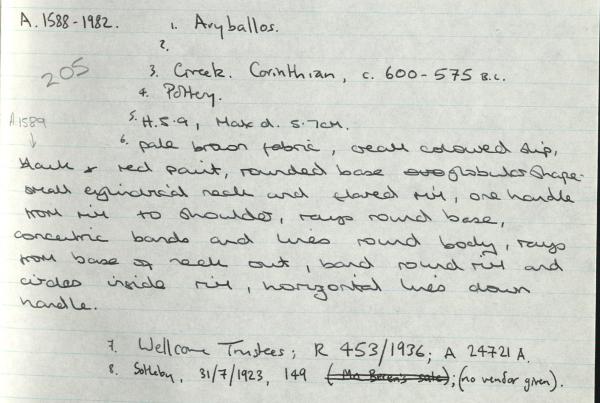 A.1588-1982. 1. Aryballos.
2.
205
3. Greek. Corinthian, c. 600-575 B.C.
4. Pottery.
A.1589
5. H.5.9, Max d. 5.7cm.
6. pale brown fabric, cream coloured slip,
black & red paint, rounded base globular shape.
small cylindrical neck and flared rim, one handle
from rim to shoulder, rays round base,
concentric bands and lines round body, rays
from base of neck out, band round rim and
circles inside rim, horizontal lines down
handle.
7. Wellcome Trustees; R 453/1936; A 24721A.
8. Sotheby, 31/7/1923, 149 (Mr Beren's sale); (no vendor given).